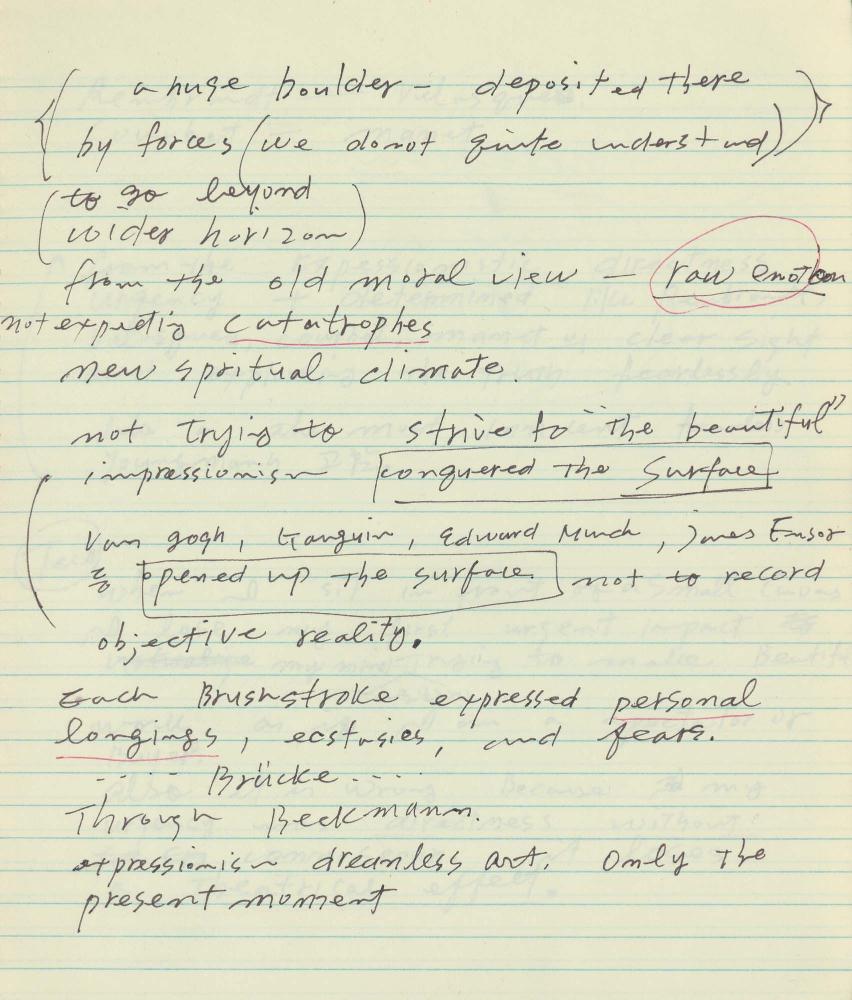 { a huge boulder — deposited there
by forces (we do not quite understand) }
(to go beyond
wider horizon)
from the old moral view — raw emotion
not expectig catatrophes
new spritual climate.
not trying to strive to "the beautiful"
impressionism conquered the surface
Van gogh, Gauguin, Edward Munch, James Ensor
등 opened up the surface not to record
objective reality.
Each Brushstroke expressed personal
longings, ecstasies, and fears.
---- Brücke ----
Through Beckmann.
expressionism dreamless art. Only the
present moment